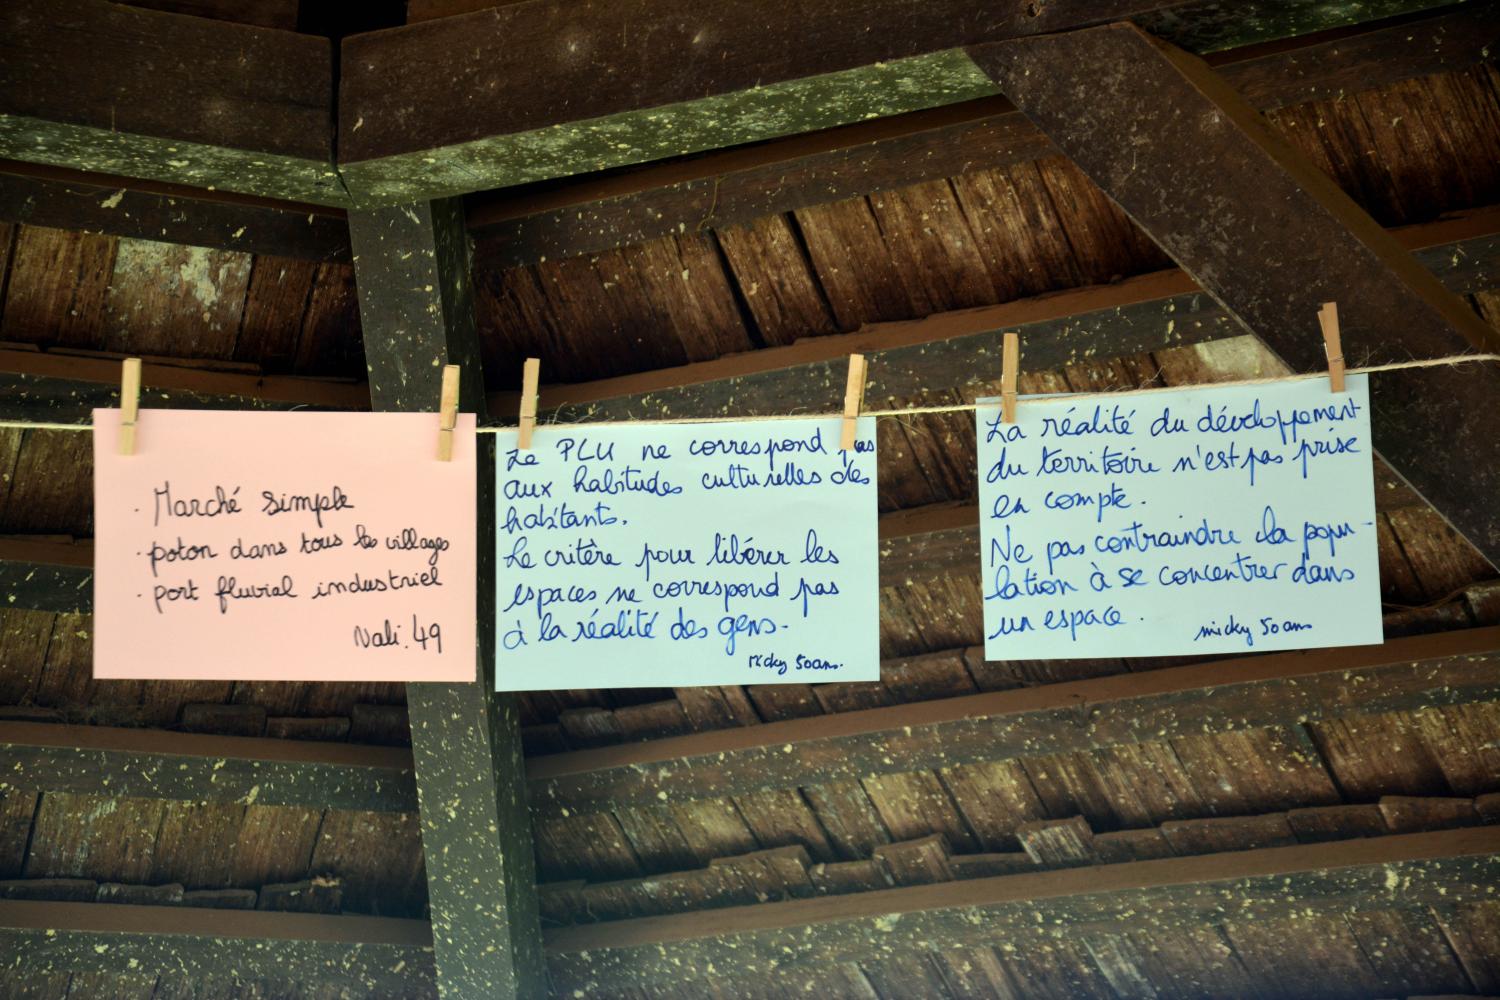 . Marché simple
. poton dans tous les villages
. port fluvial industriel
Vali. 49
Le PLU ne correspond pas
aux habitudes culturelles des
habitants.
Le critère pour libérer les
espaces ne correspond pas
à la réalité des gens.
Micky 50 ans.
La réalité du développement
du territoire n'est pas prise
en compte.
Ne pas contraindre la popu-
lation à se concentrer dans
un espace.
micky 50 ans